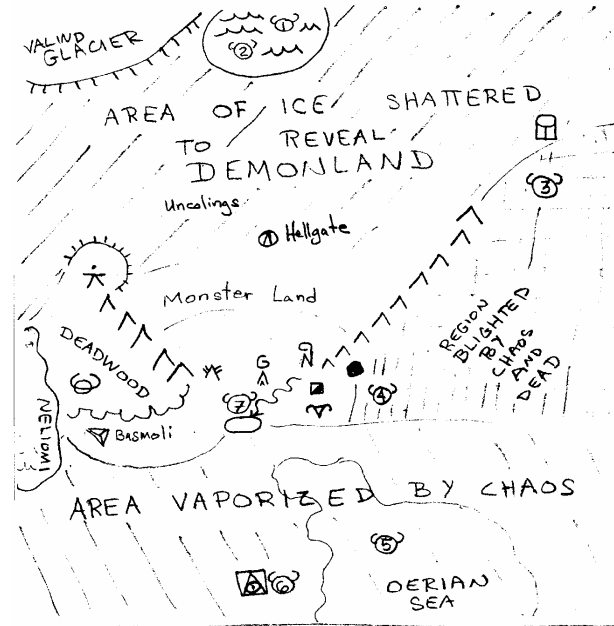 VALIND
GLACIER
1
2
AREA OF ICE SHATTERED
TO REVEAL
DEMONLAND
3
Uncolings
Hellgate
Monster Land
REGION
BLIGHTED
BY
CHAOS
AND
DEAD
DEADWOOD
G
N
4
7
NELIOMI
Basmoli
AREA VAPORIZED BY CHAOS
5
6
OERIAN
SEA